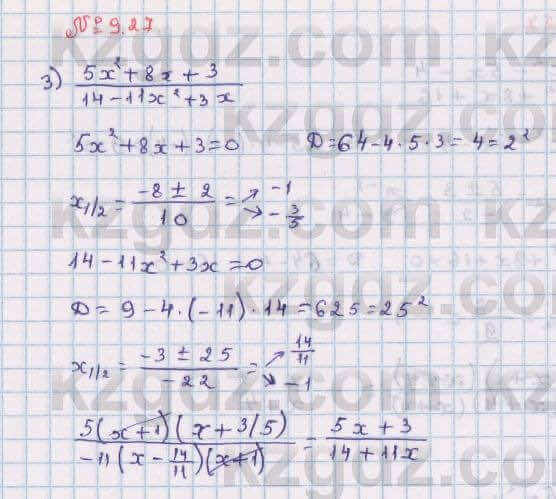 № 9.27
3) (5x² + 8x + 3)/(14 - 11x² + 3x)
5x² + 8x + 3 = 0 D = 64 - 4 · 5 · 3 = 4 = 2²
x₁/₂ = (-8 ± 2)/10 = ↗ -1 ↘ -3/5
14 - 11x² + 3x = 0
D = 9 - 4 · (-11) · 14 = 625 = 25²
x₁/₂ = (-3 ± 25)/(-22) = ↗ 14/11 ↘ -1
5(x + 1)(x + 3/5)/(-11(x - 14/11)(x + 1)) = (5x + 3)/(14 + 11x)
kzgdz.com